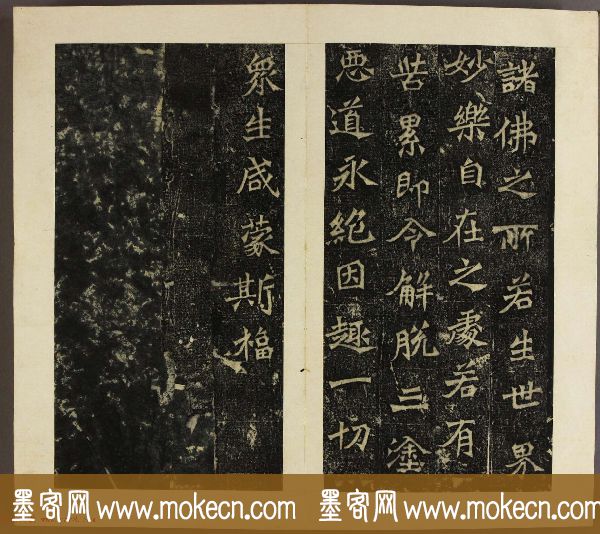 諸佛之所若生世界
妙樂自在之處若有
苦累即令解脱三塗
惡道永絶因趣一切
衆生咸蒙斯福
墨客网 www.mokecn.com 墨客网 www.mokecn.com